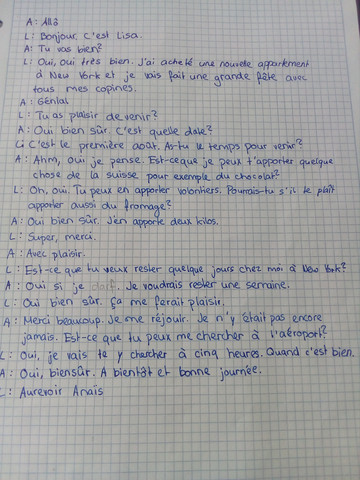 A: Allô
L: Bonjour. C'est Lisa.
A: Tu vas bien?
L: Oui, oui très bien. J'ai acheté une nouvelle appartement
à New York et je vais fait une grande fête avec
tous mes copines.
A: Génial
L: Tu as plaisir de venir?
A: Oui bien sûr. C'est quelle date?
L: C'est le première août. As-tu le temps pour venir?
A: Ahm, oui je pense. Est-ceque je peux t'apporter quelque
chose de la suisse pour exemple du chocolat?
L: Oh, oui. Tu peux en apporter volontiers. Pourrais-tu s'il te plaît
apporter aussi du fromage?
A: Oui bien sûr. J'en apporte deux kilos.
L: Super, merci.
A: Avec plaisir.
L: Est-ce que tu veux rester quelque jours chez moi à New York?
A: Oui si je darf. Je voudrais rester une semaine.
L: Oui bien sûr. Ça me ferait plaisir.
A: Merci beaucoup. Je me réjouir. Je n'y était pas encore
jamais. Est-ce que tu peux me chercher à l'aéroport?
L: Oui, je vais te y chercher à cinq heures. Quand c'est bien.
A: Oui, biensûr. A bientôt et bonne journée.
L: Aurevoir Anaïs